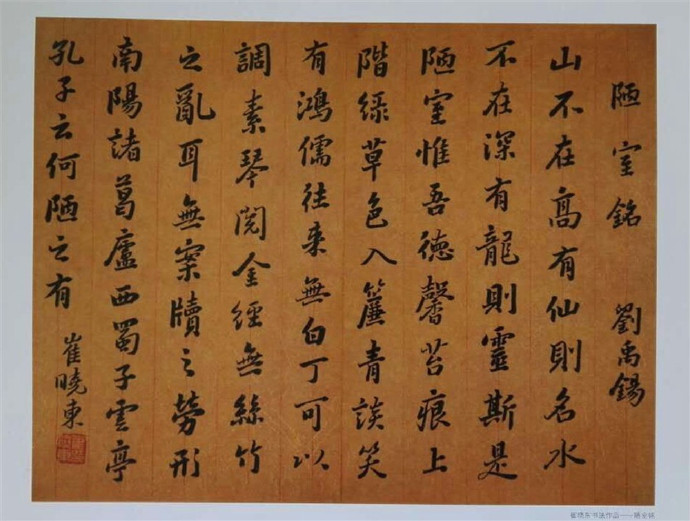 陋室銘 劉禹錫
山不在髙有仙則名水
不在深有龍則靈斯是
陋室惟吾徳馨苔痕上
階緑草色入簾青談笑
有鴻儒往来無白丁可以
調素琴閱金經無絲竹
之亂耳無案牘之勞形
南陽諸葛廬西蜀子雲亭
孔子云何陋之有 崔曉東
崔晓东书法作品——陋室铭